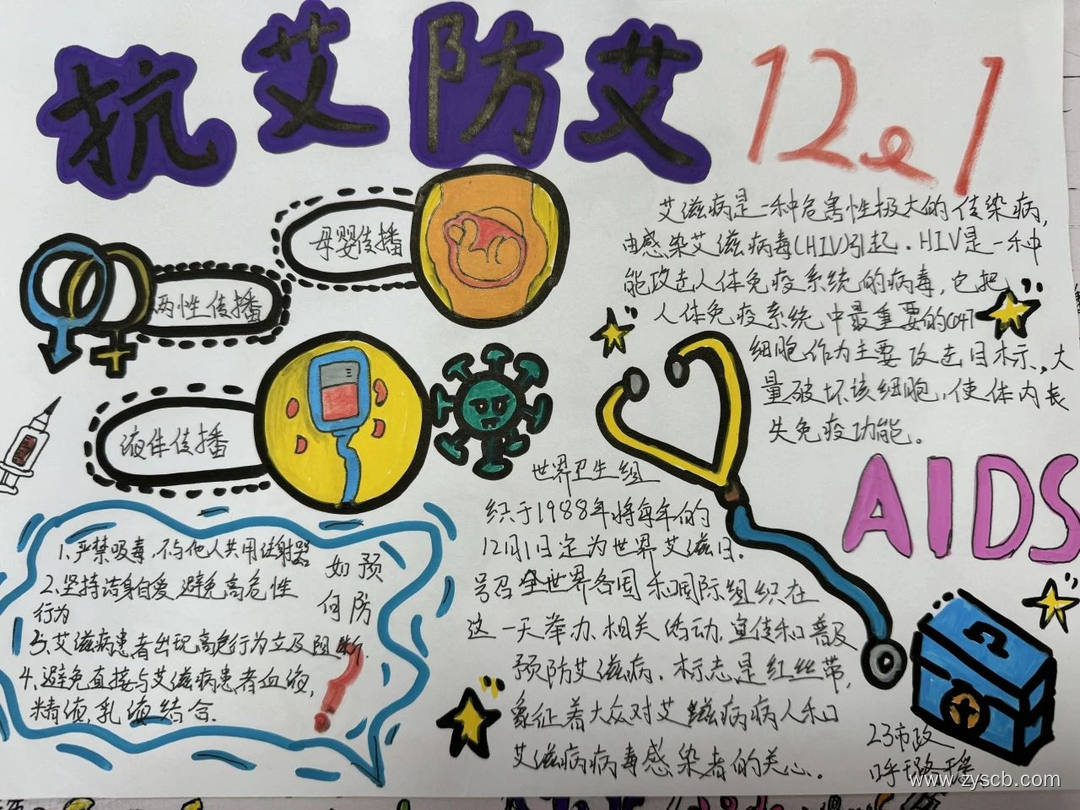 抗艾防艾
12.1
母婴传播
两性传播
液体传播
艾滋病是一种危害性极大的传染病,
由感染艾滋病毒(HIV)引起.HIV是一种
能攻击人体免疫系统的病毒,它把
人体免疫系统中最重要的CD4T
细胞作为主要攻击目标,大
量破坏该细胞,使体内丧
失免疫功能。
AIDS
世界卫生组
织于1988年将每年的
12月1日定为世界艾滋日.
号召全世界各国和国际组织在
这一天举办相关活动,宣传和普及
预防艾滋病.标志是红丝带,
象征着大众对艾滋病病人和
艾滋病病毒感染者的关心.
如何预防
?
1.严禁吸毒.不与他人共用注射器
2.坚持洁身自爱 避免高危性
行为
3.艾滋病患者出现高危行为立及阻断.
4.避免直接与艾滋病患者血液,
精液,乳液结合.
23市政
www.zyscb.com